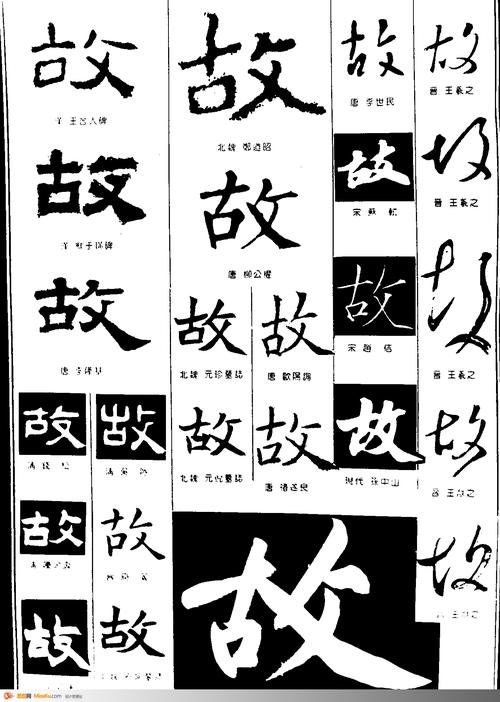 故
故
故
唐 李隆基
故
故
故
故
故
故
故
北魏 鄭道昭
故
唐 柳公權
故
北魏 元珍墓誌
故
唐 歐陽詢
故
北魏 元倪墓誌
故
唐 褚遂良
故
故
唐 李世民
故
宋 蘇 軾
故
宋 趙 佶
故
現代 孫中山
故
晉 王羲之
故
晉 王羲之
故
晉 王羲之
故
晉 王羲之
故
王羲之